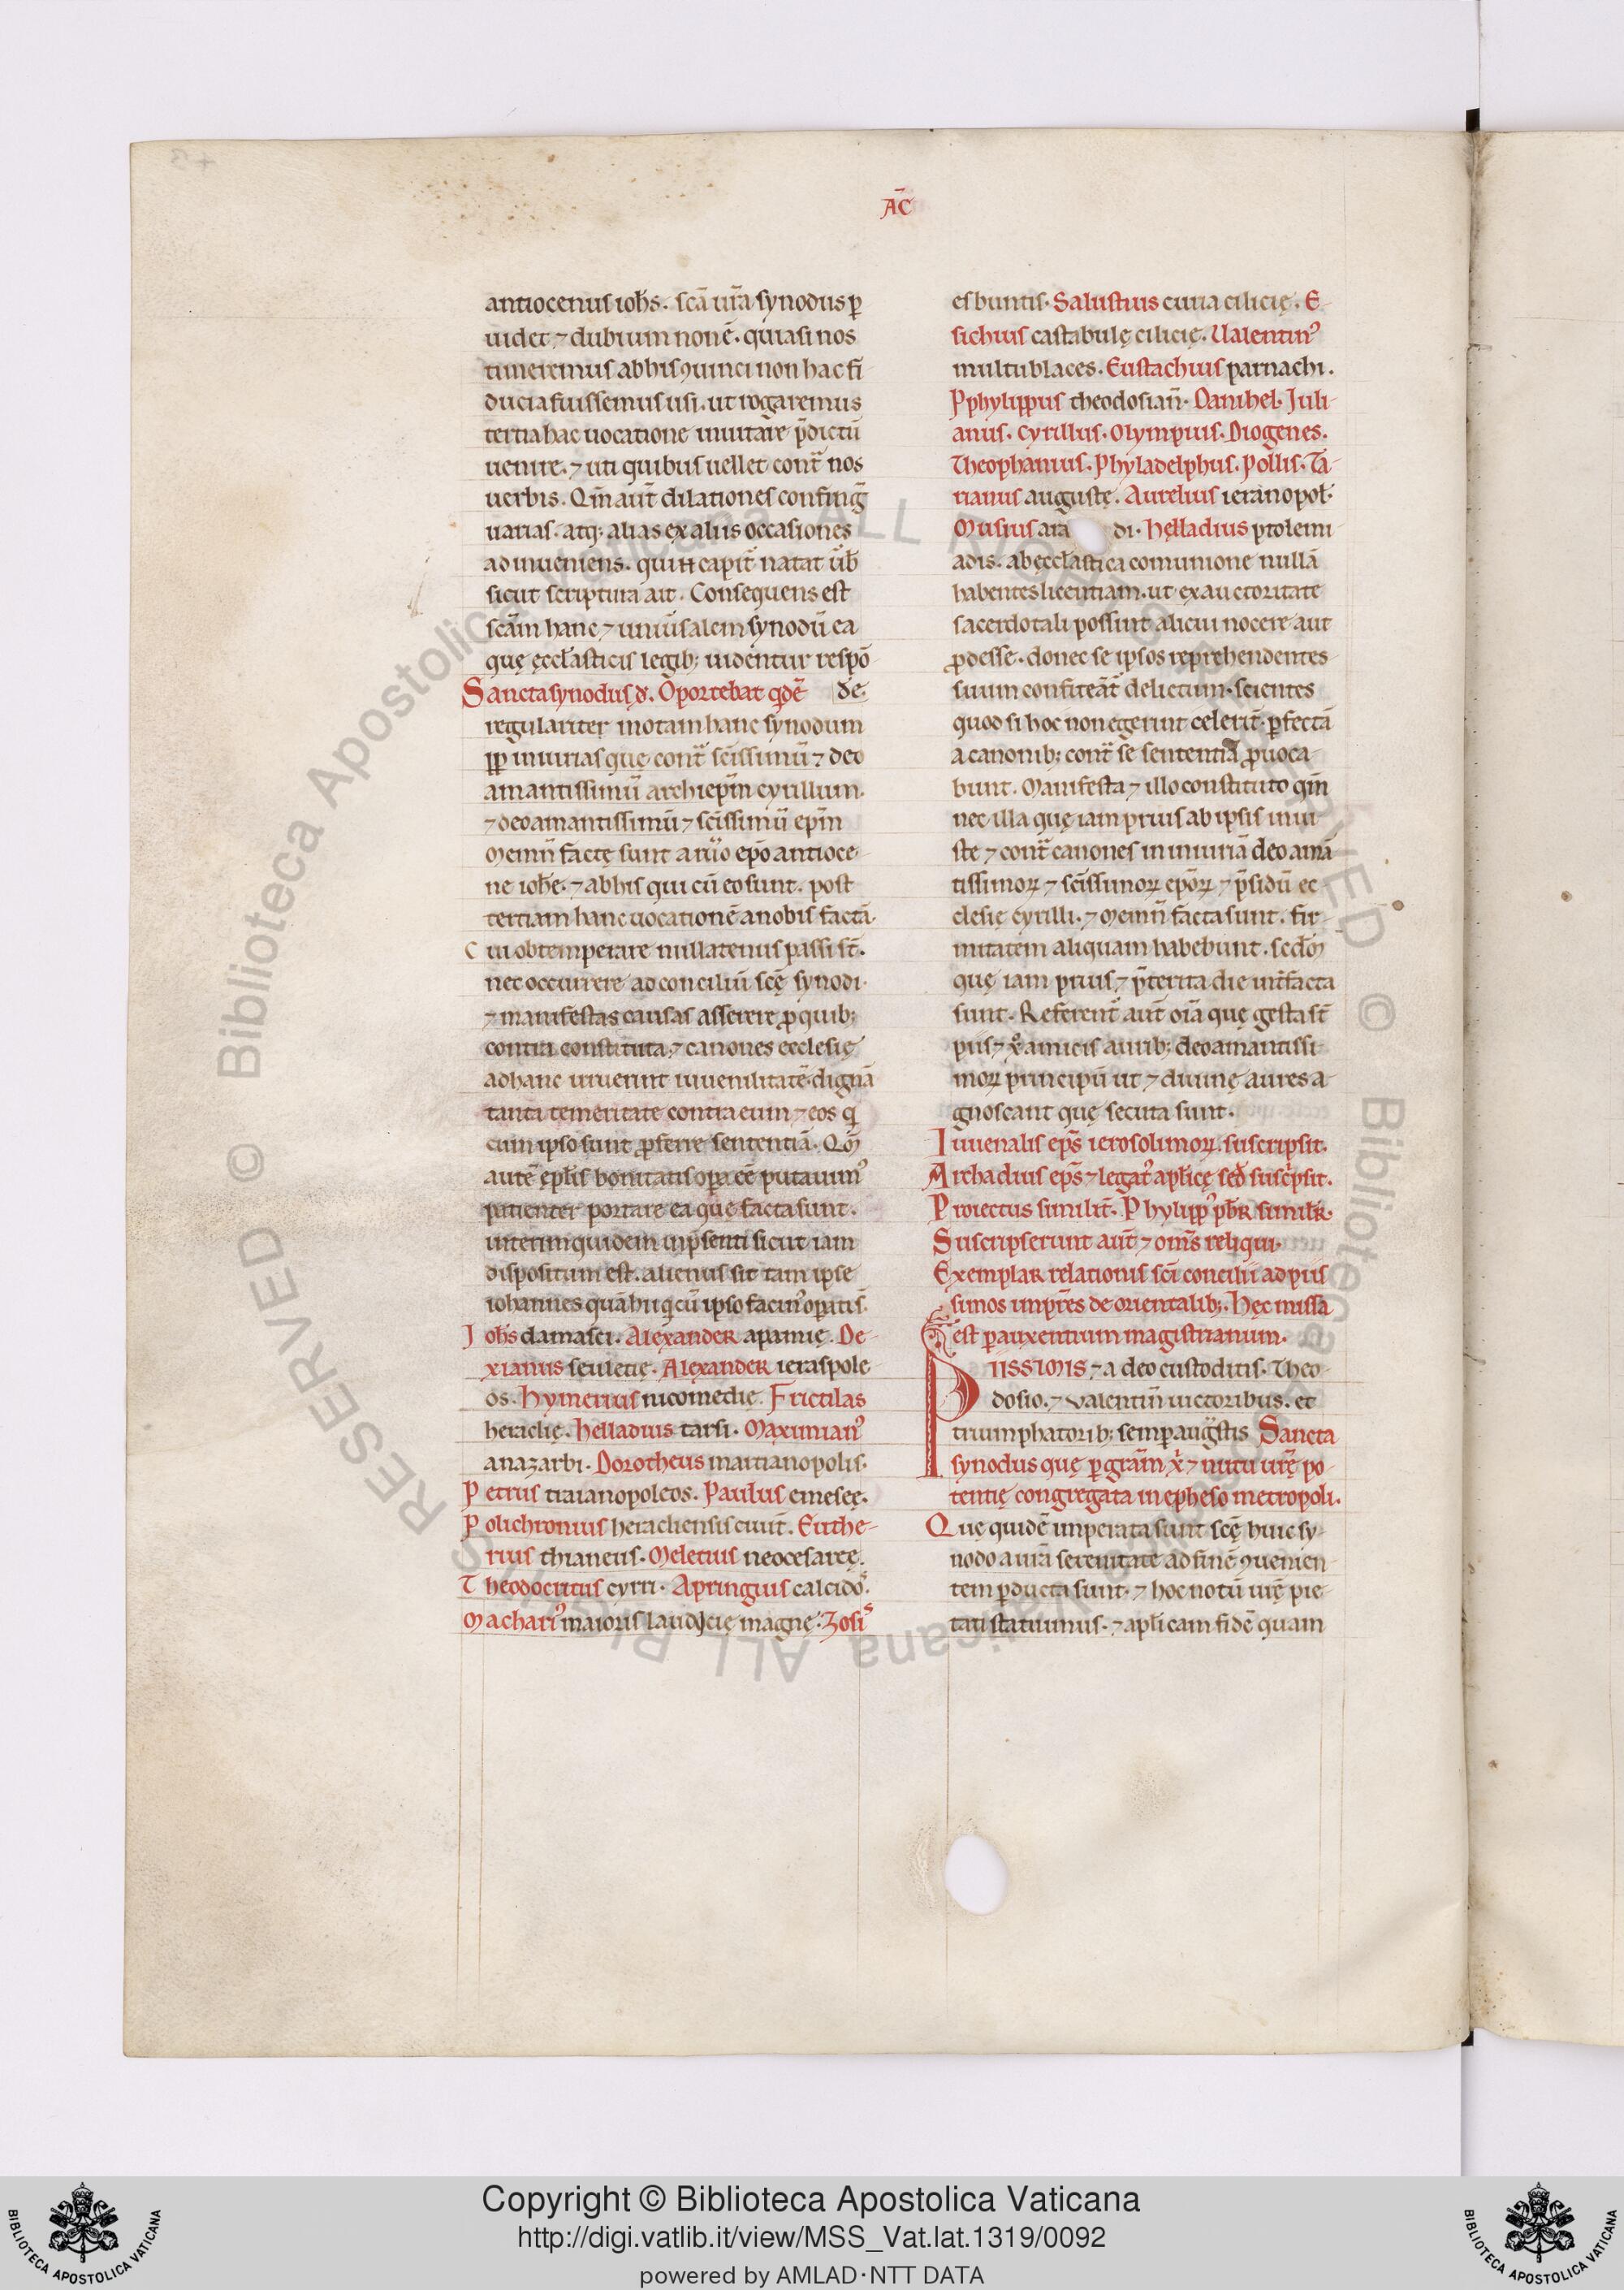 AC̄
antiocenus ioħs. sc̄a ur̄a synodus ꝑ
uidet ⁊ dubium non ē. quia si nos
timeremus ab his ꝯuinci non hac fi-
ducia fuissemus usi. ut rogaremus
tertia hac uocatione inuitare p̄dictū
uenire. ⁊ uti quibus uellet cont̄ nos
uerbis. Qm̄ aut̄ dilationes confing̃
uarias. atq; alias ex aliis occasiones
adinueniens.
sicut scriptura ait. Consequens est
sc̄am hanc ⁊ uniūsalem synodū ea
quę ęccl̄asticis legib; uidentur respō
Sancta synodus đ. Oportebat qđē de
regulariter motam hanc synodum
ꝓp iniurias quę cont̄ sc̄issimū ⁊ deo
amantissimū archiep̄m cyrillum.
⁊ deo amantissimū ⁊ sc̄issimū ep̄m
Memn̄ factę sunt a uiro ep̄o antioce-
ne ioħe. ⁊ ab his qui cū eo sunt. post
tertiam hanc uocationē a nobis factā.
Cui obtemperare nullatenus passi st̄.
nec occurrere ad conciliū sc̄ę synodi.
⁊ manifestas causas asserere ꝓ quib;
contra constituta ⁊ canones ecclesię
ad hanc iruerint iuuenilitatē. dignā
tanta temeritate contra eum ⁊ eos q̇
cum ipso sunt ꝓferre sententiā. Qm̄
autē ep̄lis bonitatis opa eē putauim᾿
patienter portare ea quę facta sunt.
interim quidem in p̄senti sicut iam
dispositum est. alienus sit tam ipse
iohannes quā hii q̇ cū ipso facin᾿ opatis.
Joħs damasci. Alexander apamię. De-
xianus seuletię. Alexander ieraspole-
os. Hymerius nicomedię. Frictilas
heraclię. Helladius tarsi. Maximian᾿
anazarbi. Dorotheus martianopolis.
Petrus traianopoleos. Paulus emesęę.
Polichronius heracliensis ciuit̄. Euthe-
rius thianeus. Meletius neocesareę.
Theodocritus cyrri. Apringius calcidō.
Machari᾿ maioris laudicię magnę. Zosi᾿
esbuntis. Salustius curia cilicię. E-
sichius castabulę cilicię. Ualentin᾿
multublaces. Eustachius parnachi.
Pphylippus theodosian̄. Danihel. Juli-
anus. Cyrillus. Olympius. Diogenes.
Theophanius. Phyladelphus. Pollis. Ta-
tianus augustę. Aurelius ieranopol̄.
Musius ara di. Helladius ptolemi
adis. ab ęccl̄astica comunione nullā
habentes licentiam. ut ex auctoritate
sacerdotali possint alicui nocere aut
ꝓdesse. donec se ipsos reprehendentes
suum confiteāt᷑ delictum. scientes
quod si hoc non egerint celerit̄. ꝑfectā
a canonib; cont̄ se sententiā ꝓuoca-
bunt. Manifesta ⁊ illo constituto qm̄
nec illa quę iam prius ab ipsis iniu-
ste ⁊ cont̄ canones in iniuriā deo amā
tissimoꝝ ⁊ sc̄issimoꝝ ep̄oꝝ ⁊ p̄sidū ec-
clesię cyrilli. ⁊ memn̄ facta sunt. fir-
mitatem aliquam habebunt. scđm
quę iam prius ⁊ p̄terita die int̄facta
sunt. Referent᷑ aut̄ oīa quę gesta st̄
piis ⁊ xp̄i amicis aurib; deo amantissi
moꝝ principū ut ⁊ diuinę aures a-
gnoscant quę secuta sunt.
Iuuenalis ep̄s ierosolimoꝝ. suscripsit.
Archadius ep̄s ⁊ legat᾿ apl̄icę sed̄ suscripsit.
Proiectus similit̄. Phylipp᾿ pb̄r similit̄.
Suscripserunt aut̄ ⁊ om̄s reliqui.
Exemplar relationis sc̄i concilii ad piis
simos inpr̄es de orientalib; Hęc missa
est ꝑ auxentium magistrianum.
PIISSIMIS ⁊ a deo custoditis. Theo-
dosio. ⁊ valentin̄ uictoribus. et
triumphatorib; semꝑ augustis Sancta
synodus quę ꝑ gr̄am xp̄i ⁊ nutu ur̄ę po-
tentię congregata in epheso metropoli.
Quę quidē imperata sunt sc̄ę huic sy-
nodo a ur̄a serenitate ad finē ꝯuenien-
tem ꝑducta sunt. ⁊ hoc notū ur̄ę pie-
tati statuimus. ⁊ apl̄icam fidē quam
© Biblioteca Apostolica Vaticana ALL RIGHTS RESERVED
Copyright © Biblioteca Apostolica Vaticana
http://digi.vatlib.it/view/MSS_Vat.lat.1319/0092
powered by AMLAD·NTT DATA
BIBLIOTECA APOSTOLICA VATICANA
BIBLIOTECA APOSTOLICA VATICANA